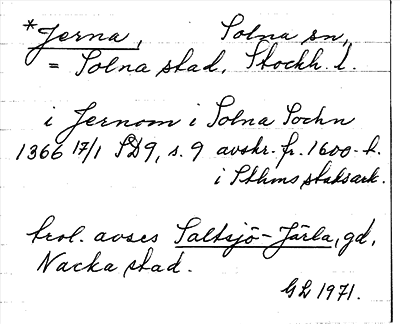 *Jerna, Solna sn,
= Solna stad, Stockh. l.
i Jernom i Solna Sochn
1366 17/1 SD9, s. 9 avskr. fr. 1600-t.
i Sthms stadsark.
trol. avses Saltsjö-Järla, gd,
Nacka stad.
GL 1971.